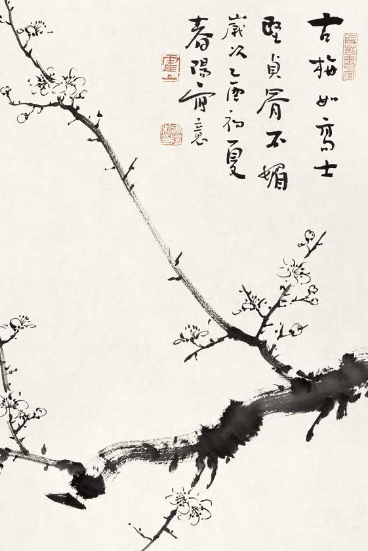 古梅如高士
堅貞骨不媚
歲次乙酉初夏
春陽寫意